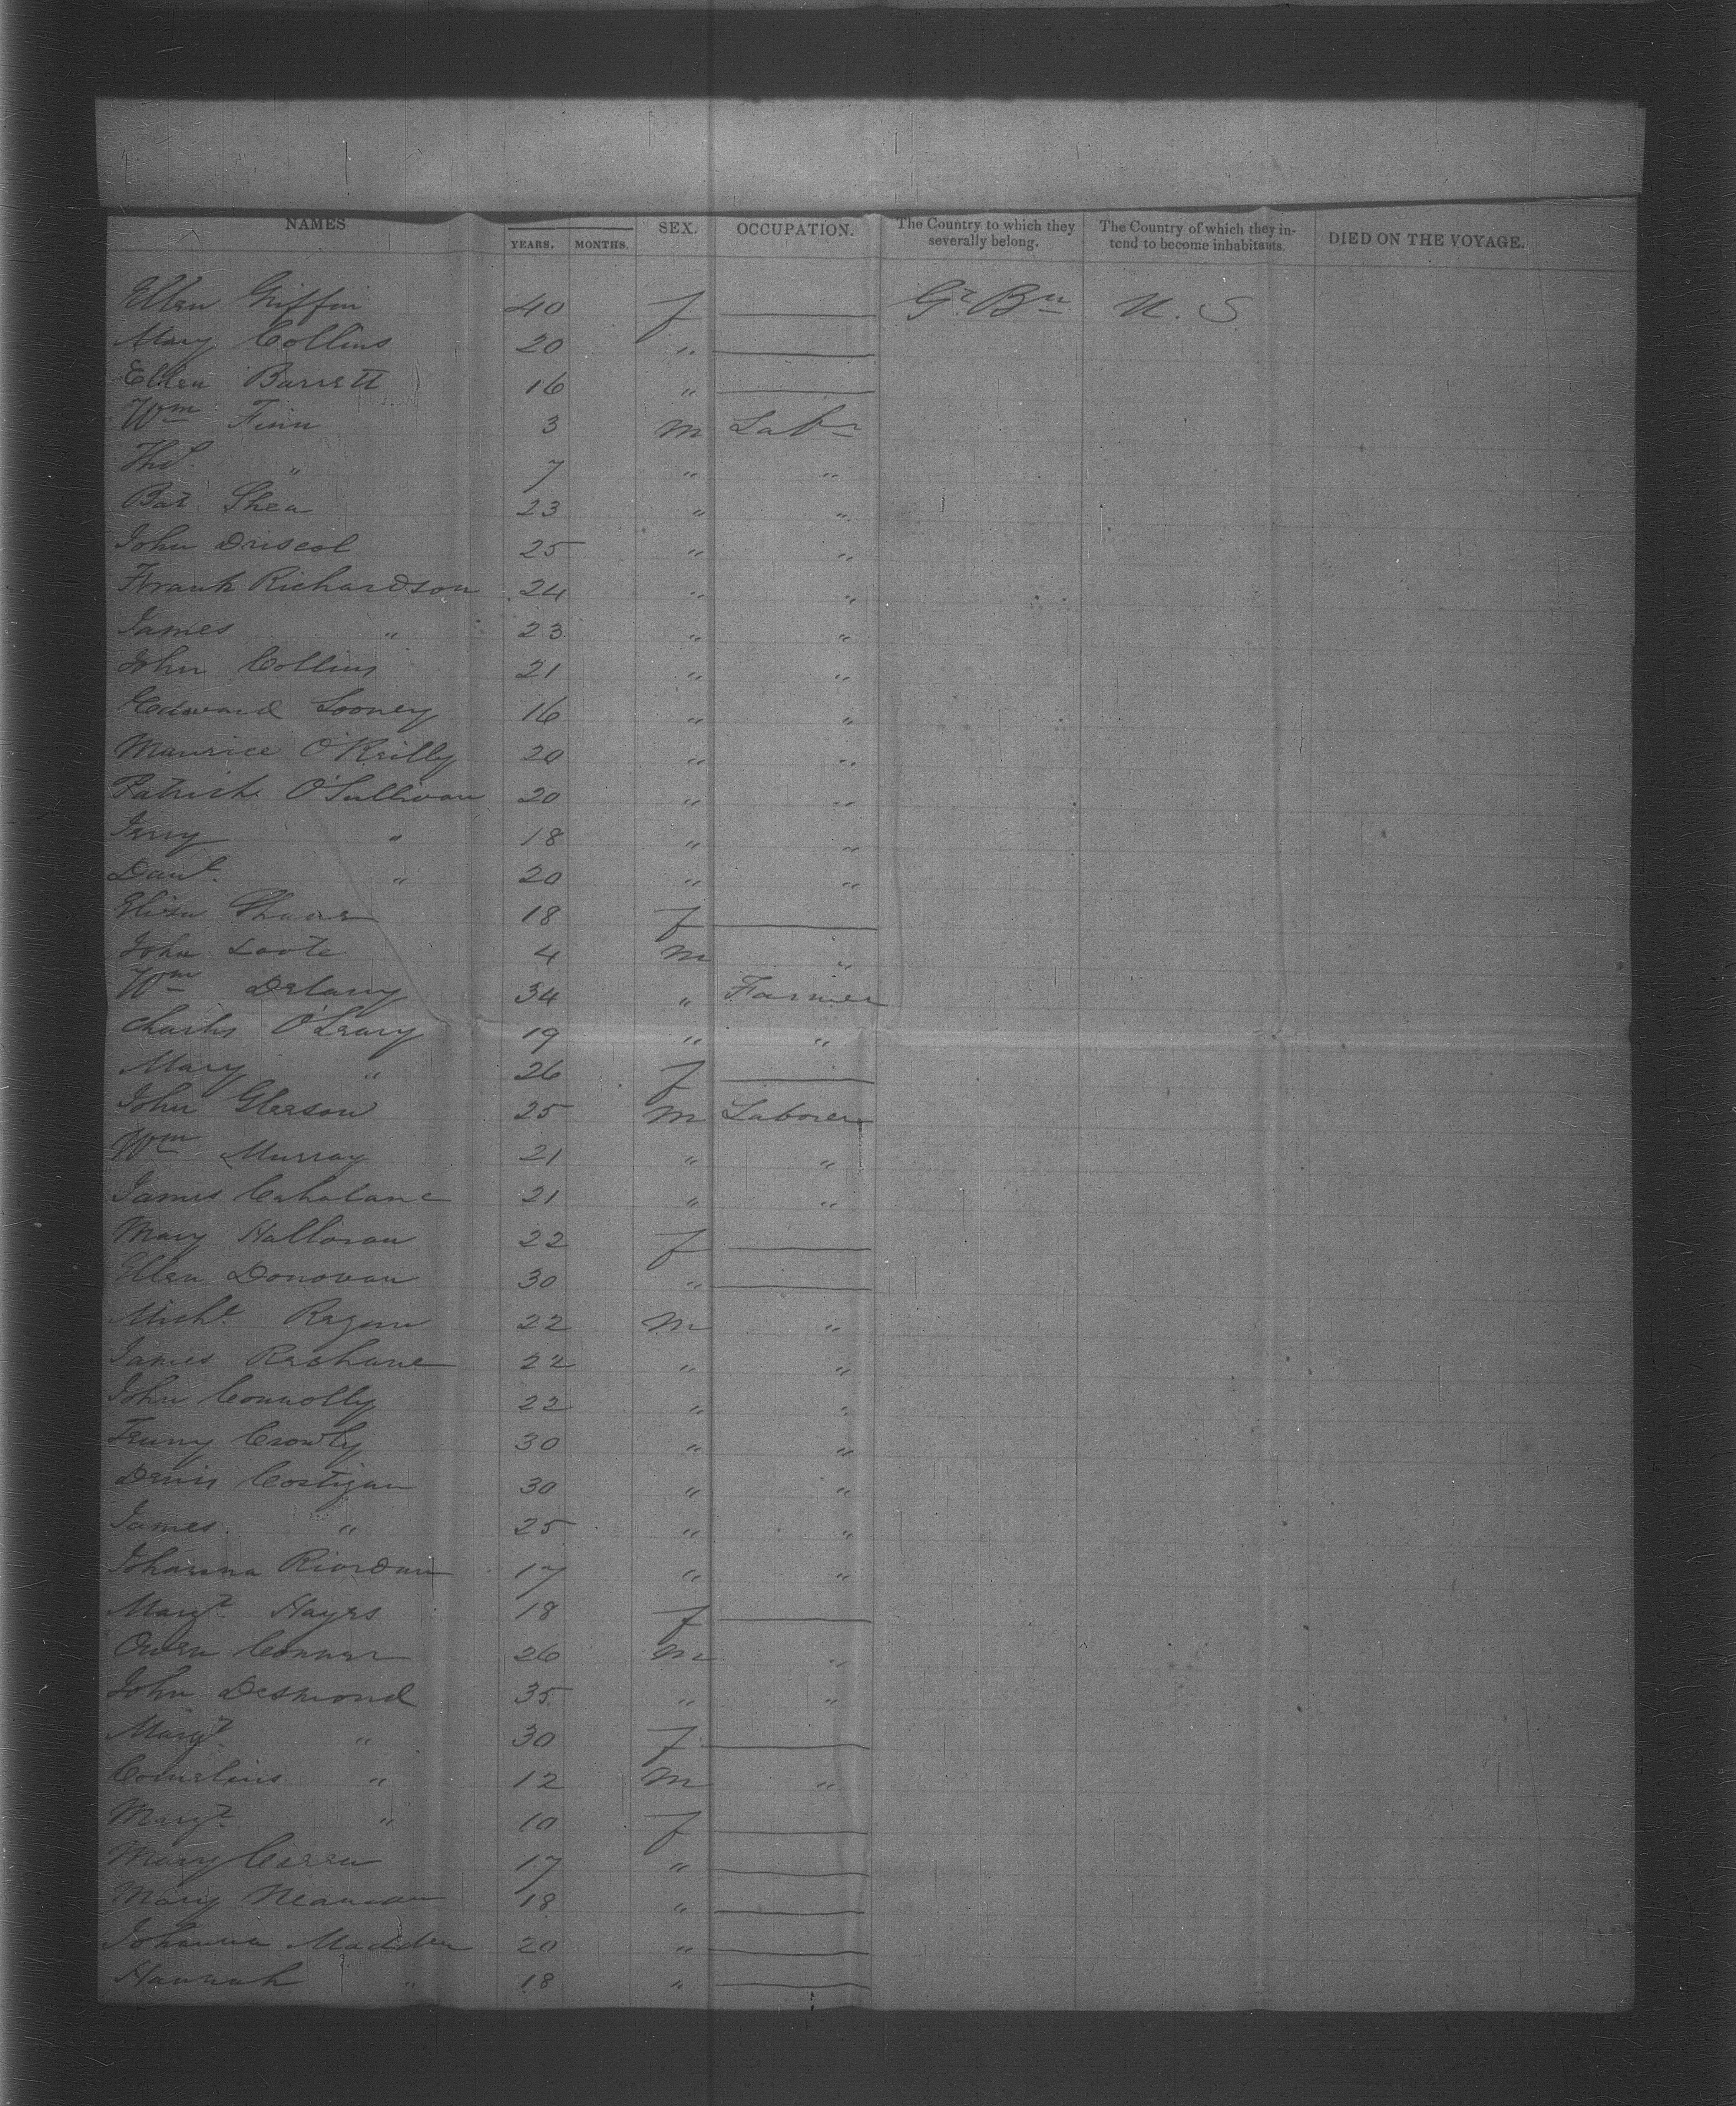 NAMES YEARS. MONTHS. SEX. OCCUPATION. The Country to which they severally belong. The Country of which they intend to become inhabitants. DIED ON THE VOYAGE.
Ellen Griffin 40 f —— Gt. Bn U. S
Mary Collins 20 " ——
Ellen Barrett 16 " ——
Wm Finn 3 m Labr
Thos. " 7 " "
Bat. Shea 23 " "
John Driscol 25 " "
Frank Richardson 24 " "
James " 23 " "
John Collins 21 " "
Edward Looney 16 " "
Maurice O'Reilly 20 " "
Patrick O'Sullivan 20 " "
Jerry " 18 " "
Danl. " 20 " "
Eliza 18 f ——
John Loote 4 m "
Wm Delany 34 " Farmer
Charles O'Leary 19 " "
Mary " 26 f ——
John Gleeson 25 m Laborer
Wm Murray 21 " "
James Cahalane 21 " "
Mary Halloran 22 f ——
Ellen Donovan 30 " ——
Michl. Regan 22 m "
James 22 " "
John Connolly 22 " "
Crowly 30 " "
Denis Costigan 30 " "
James " 25 " "
Johanna Riordan 17 " "
Margt. Hayes 18 f ——
Owen Conner 26 m "
John Desmond 35 " "
Margt. " 30 f ——
Cornelius " 12 m "
Margt. " 10 f ——
Mary 17 " ——
Mary 18 " ——
Johanna Madden 20 " ——
Hannah " 18 " ——